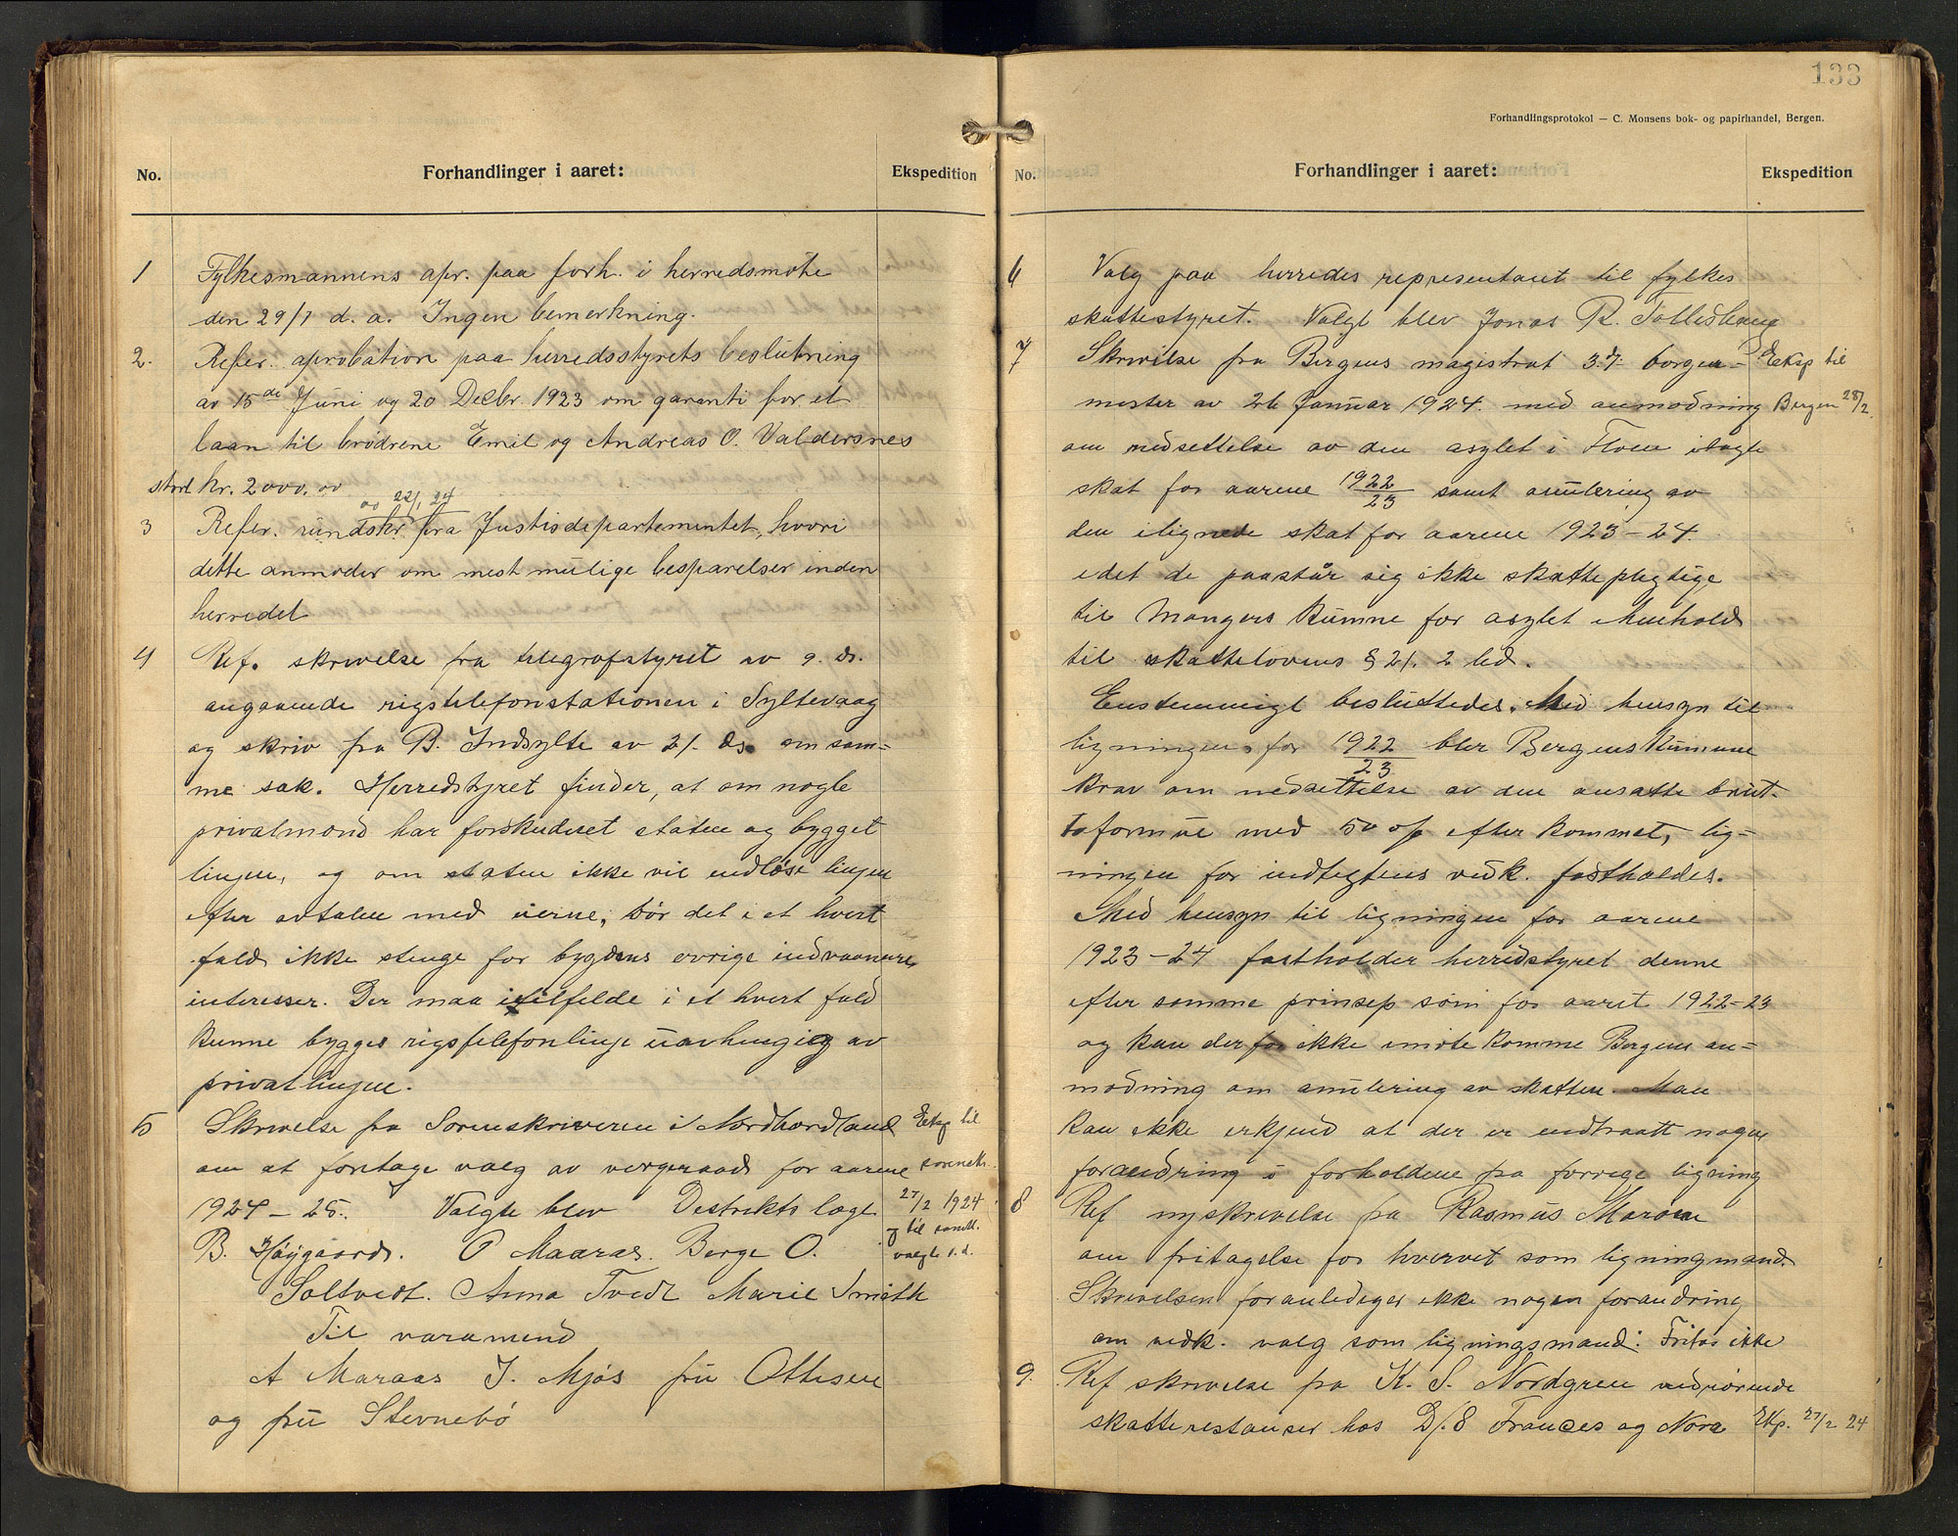 No. Forhandlinger i aaret: Ekspedition
1 Fylkesmannens apr. paa forh. i herredsmøte
den 29/1 d. a. Ingen bemerkning.
2. Refer. aprobation paa herredsstyrets beslutning
av 15de Juni og 20 Decbr. 1923 om garanti for et
laan til brødrene Emil og Andreas O. Valdersnes
stort kr. 2000,00
av 22/1 24
3 Refer. rundskr. fra Justisdepartementet, hvori
dette anmoder om mest mulige besparelser inden
herredet
4 Ref. skrivelse fra telegrafstyret av 9. ds.
angaaende rigstelefonstationen i Syltevaag
og skriv fra B. Indsylte av 21. ds. om sam-
me sak. Herredstyret finder, at om nogle
privatmænd har forskuderet staten og bygget
linjen, og om staten ikke vil indløse linjen
efter avtalen med eierne, bør det i et hvert
fald ikke stenge for bygdens øvrige indvaaneres
interesser. Der maa itilfelde i et hvert fald
kunne bygges rigstelefonlinje uavhengig av
privatlinjen.
5 Skrivelse fra Sorenskriveren i Nordhordland Eksp til
om at foretage valg av vergeraad for aarene sorensk.
1924 – 25. Valgte blev Distrikts læge 27/2 1924
B. Høygaard. P Maaras. Berge O. og til samtl.
valgte s. d.
Soltvedt. Anna Tvedt Marie Smith
Til varamend
A Maraas J. Mjøs fru Ottesen
og fru Stevnebø
133
Forhandlingsprotokol — C. Monsens bok- og papirhandel, Bergen.
No. Forhandlinger i aaret: Ekspedition
6 Valg paa herredes representant til fylkes
skattestyret. Valgt blev Jonas R. Tolleshaug
7 Skrivelse fra Bergens magistrat 3.dj. borger- Eeksp til
mester av 26 Januar 1924. med anmodning Bergen 28/2.
om nedsettelse av den asylet i Floen ilagte
skat for aarene 1922/23 samt anulering av
den ilignede skat for aarene 1923–24.
idet de paastår sig ikke skattepligtige
til Mangers kumne for asylet i henhold
til skattelovens § 21. 2 led.
Enstemmigt besluttedes. Med hensyn til
ligningen for 1922/23 blir Bergens kumune
krav om nedsettelse av den ansatte brut-
toformue med 50 o/o efter kommet, lig-
ningen for indtegtens vedk. fastholdes.
Med hensyn til ligningen for aarene
1923–24 fastholder herredstyret denne
efter samme prinsep som for aaret 1922–23
og kan derfor ikke imøtekomme Bergens an-
modning om anulering av skatten. Man
kan ikke erkjend at der er indtraatt nogen
forandring i forholdene fra forrige ligning
8 Ref ny skrivelse fra Rasmus Marøen
om fritagelse for hvervet som ligningmand.
Skrivelsen foranlediger ikke nogen forandring
om vedk. valg som ligningsmand: Fritas ikke
9. Ref skrivelse fra K. S. Nordgreen vedrørende
skatterestanser hos D/S Frances og Nora Exp. 27/2 24